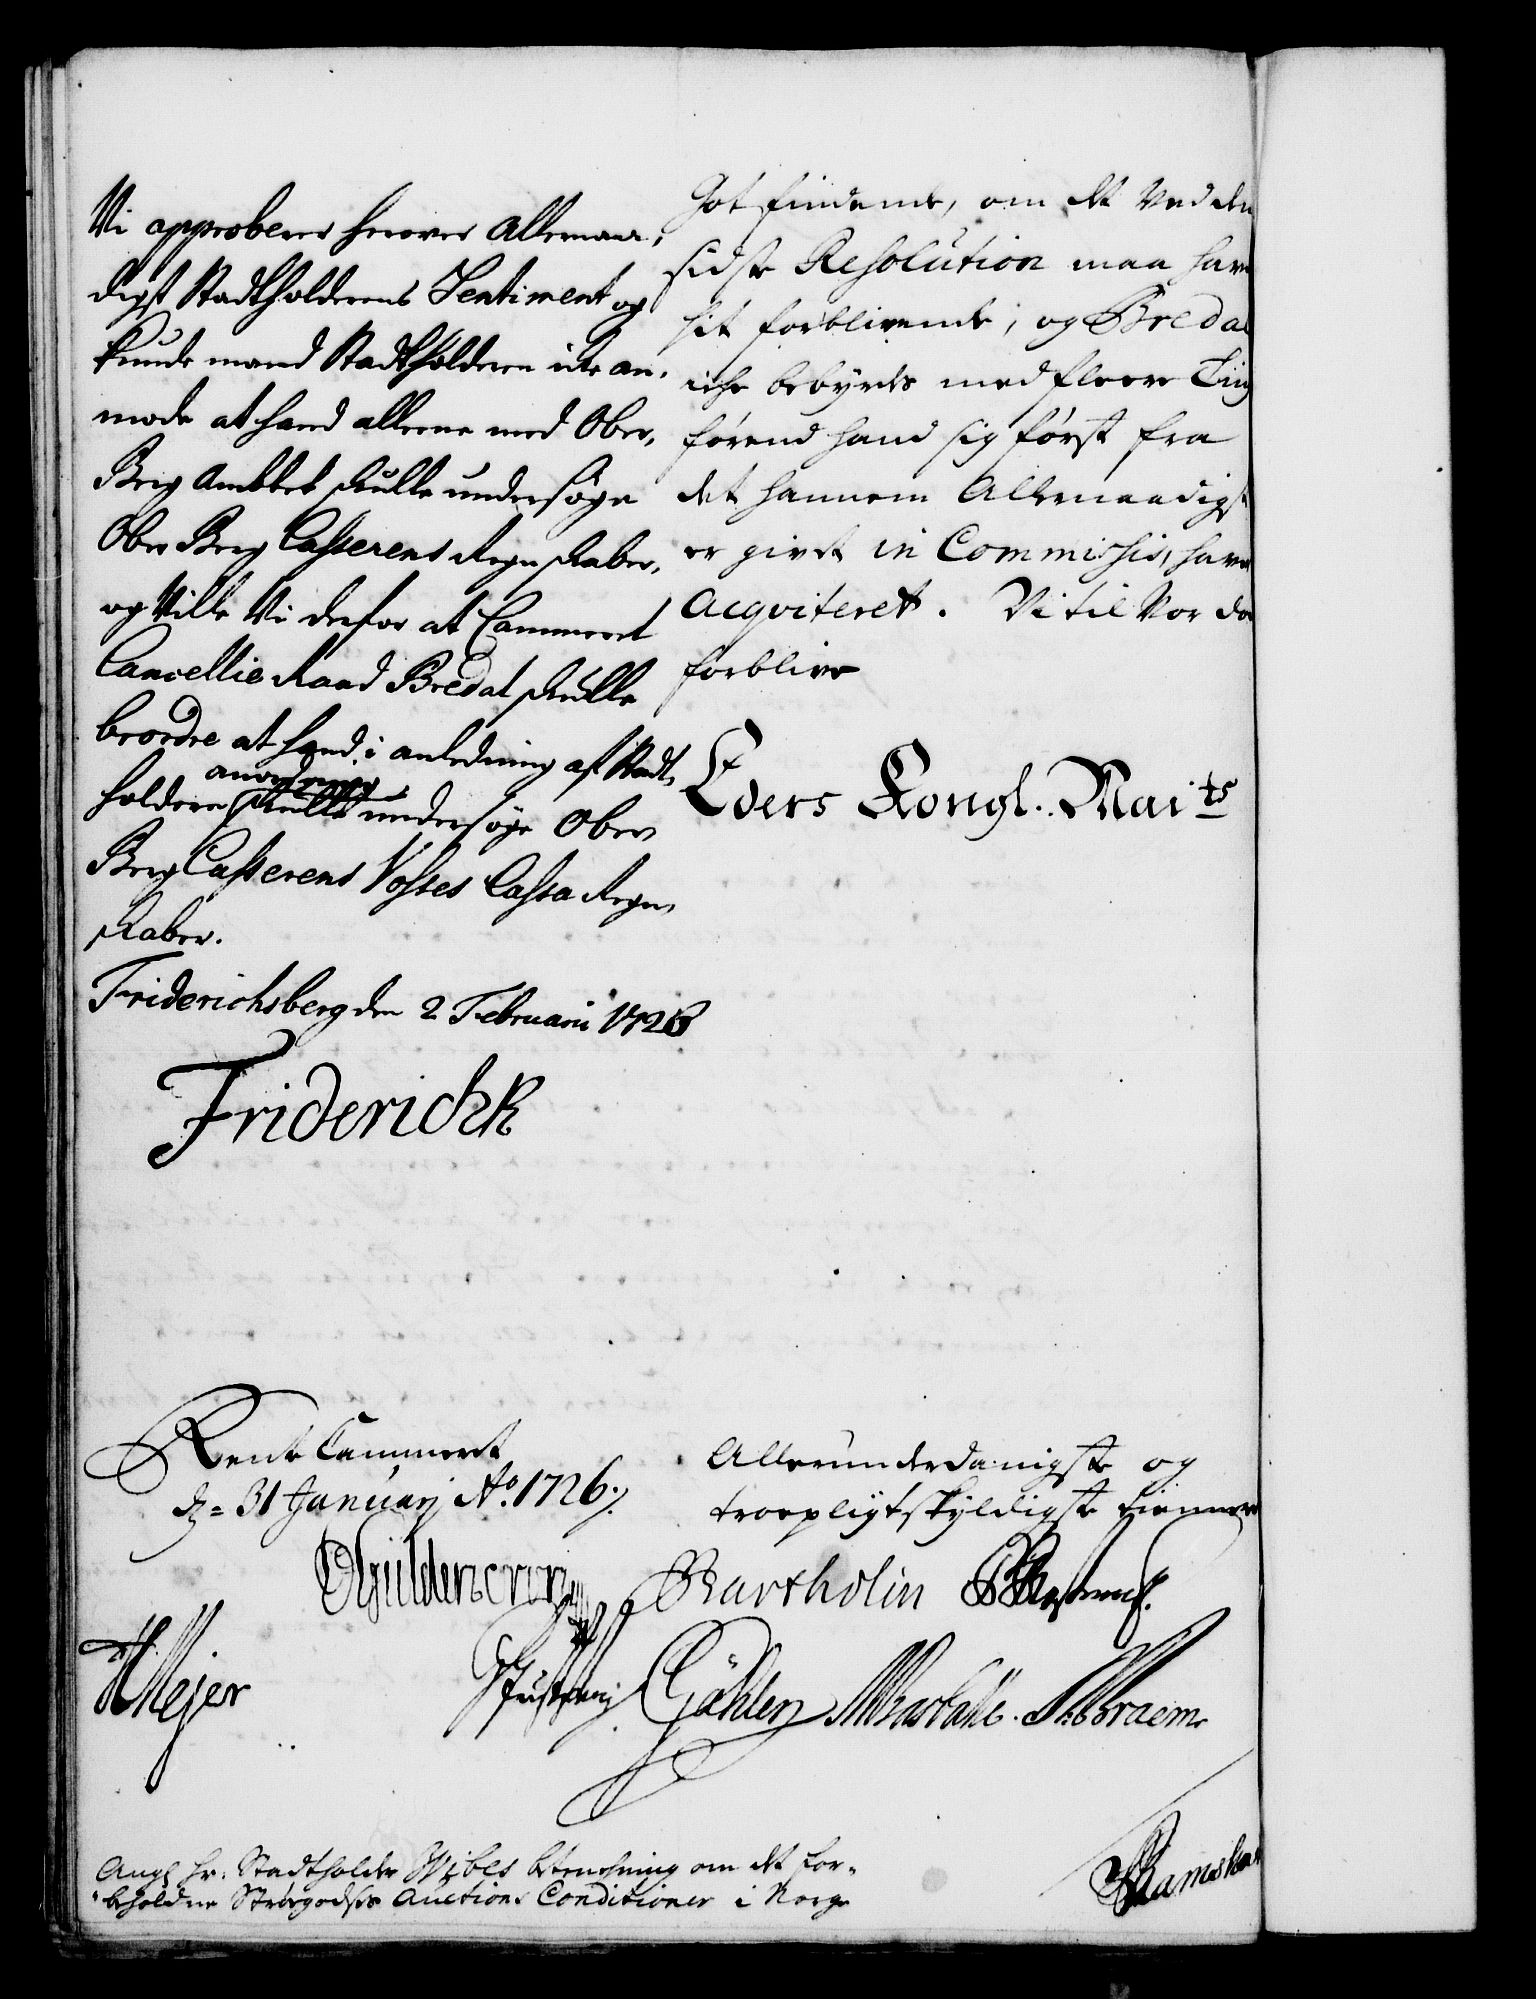 Vi approberer herover allernaa¬
digst Stadtholderens Sentiment og
kunde mand Stadtholderen icke an¬
mode at hand allene med Ober¬
Berg Ambtet skulle undersøge
Ober Berg Casserens Regnskaber,
og Ville Vi derfor at Cammeret
Cancellie Raad Bredal skulle
beordre at hand i anledning af Stadt¬
holderen anordning skulle undersøge Ober
Berg Casserens Vosses Cassa Regn¬
skaber.
Friderichsberg den 2 Februarii 1726
Friderich R
Got findende, om det Ved den
sidste Resolution maa have
sit forblivende; og Bredal
icke bebyrdes med fleere Ting
førend hand sig først fra
det hannem Allernaadigst
er givet in Commissis, haver
Acqviteret. Vi til Vor død
forblive
Eders Kongl. Mai.ts
Rente Cammeret
d. 31 Januarj Ao. 1726.
Allerunderdanigste og
troepligtskyldigste tienere
Güldencron
Bartholin
HMejer
Gähler
Braem
Ramshart
Ang. Hr. Stadtholder Wibes betenkning om det for¬
beholdne Strøegodses Auctions Conditioner i Norge